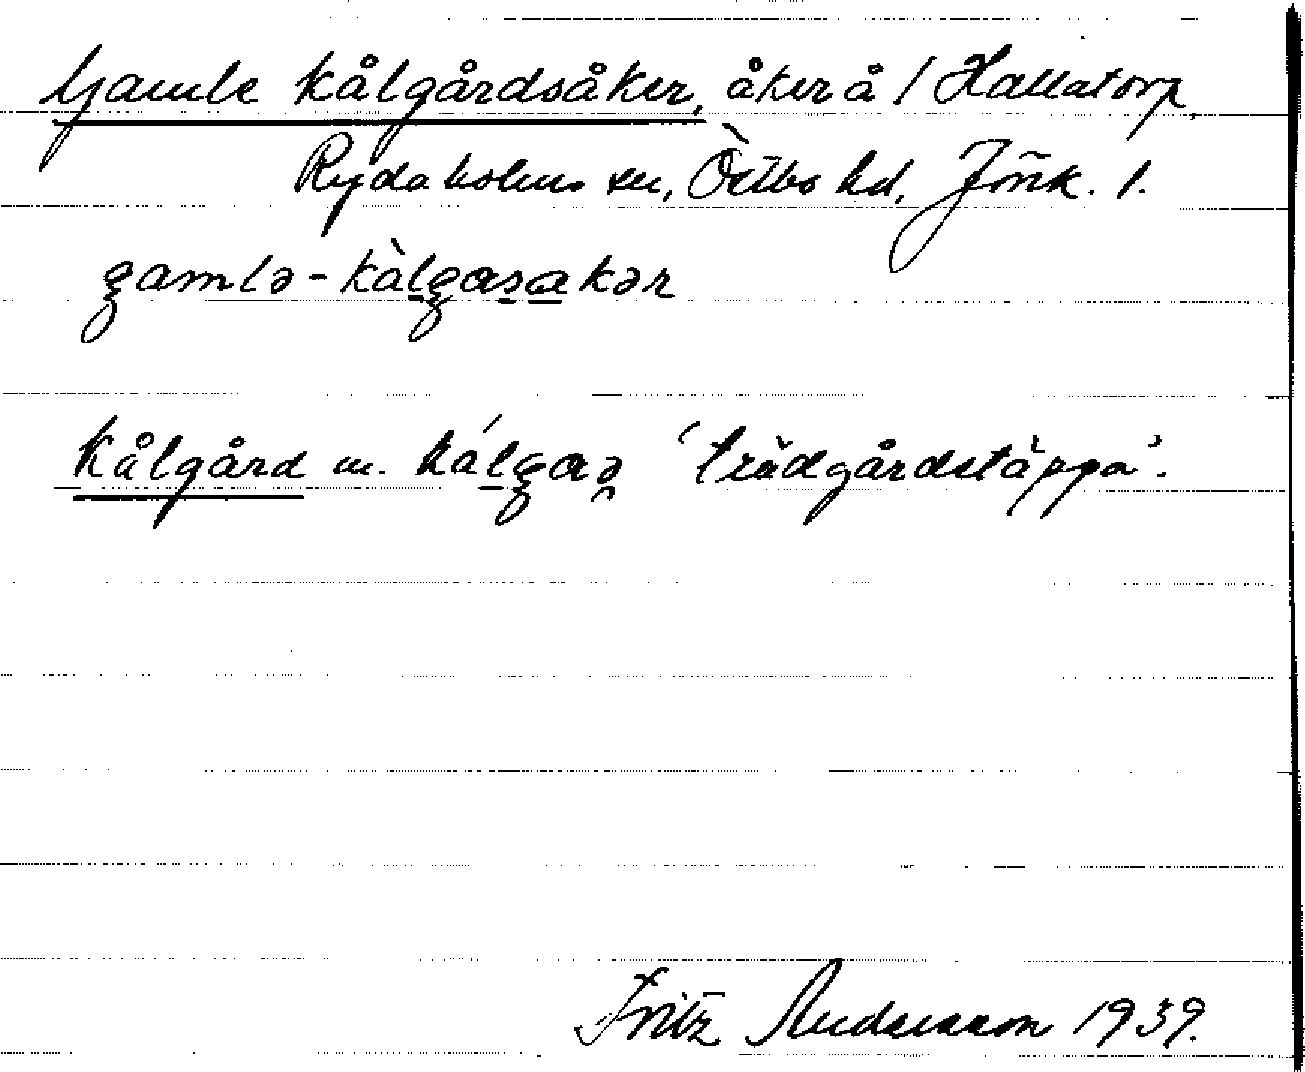 Gamle kålgårdsåker, åker å 1 Hallatorp,
Rydaholms sn, Östbo hd, Jönk. l.
gamlə-kàlgasakər
Kålgård m. kálgaə 'trädgårdstäppa'.
Fritz Andersson 1939.